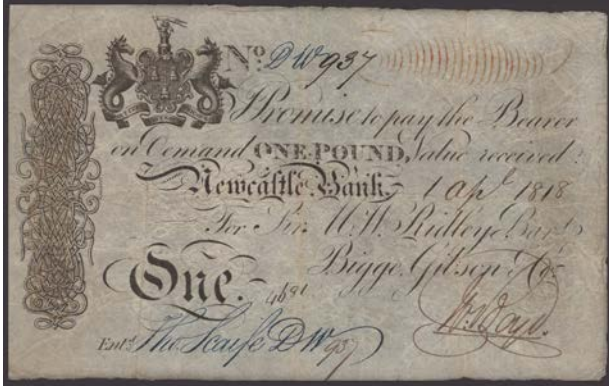 No. DW937
I Promise to pay the Bearer
on Demand ONE POUND, Value received.
Newcastle Bank 1 Apl 1818
For Sir M. W. Ridley Bart
Bigge Gibson & Co
One.
Entd Tho Scaife DW937